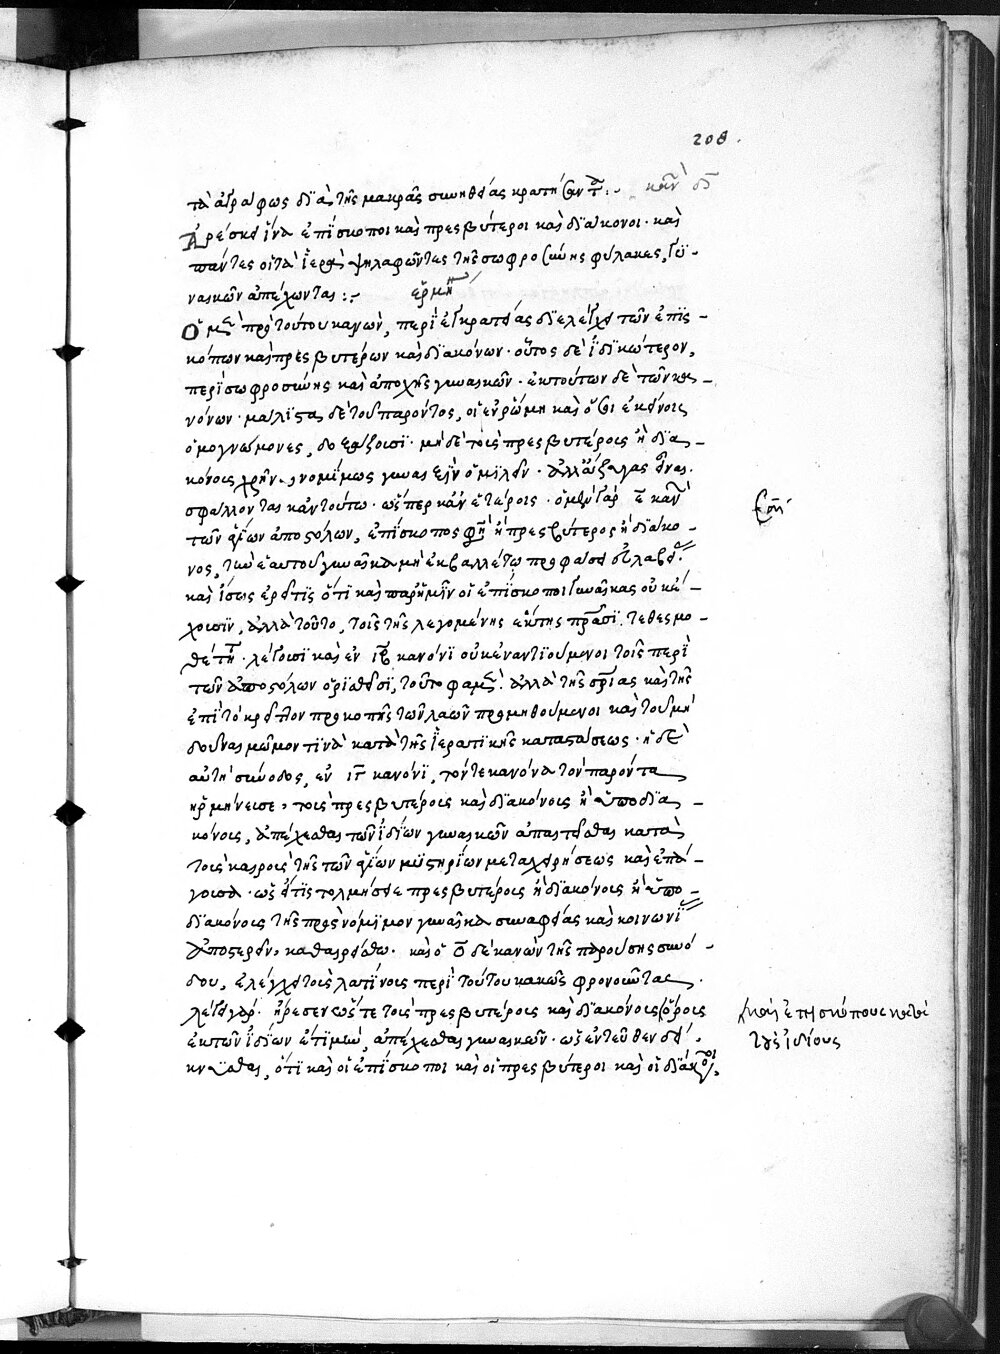 208.
τὰ ἀγράφως διὰ τῆς μακρᾶς συνηθείας κρατήσαντα :. κανὼν δ
Ἀρέσκει ἵνα ἐπίσκοποι καὶ πρεσβύτεροι καὶ διάκονοι· καὶ
πάντες οἱ τὰ ἱερὰ ψηλαφῶντες τῆς σωφροσύνης φύλακες, γυ-
ναικῶν ἀπέχωνται :. ἑρμη
Ὁ μὲν πρὸ τούτου κανὼν, περὶ ἐγκρατείας διελέγχει τῶν ἐπισ-
κόπων καὶ πρεσβυτέρων καὶ διακόνων· οὗτος δὲ ἰδικώτερον,
περὶ σωφροσύνης καὶ ἀποχῆς γυναικῶν· ἐκ τούτων δὲ τῶν κα-
νόνων· μάλιστα δὲ τοῦ παρόντος, οἱ ἐν ῥώμη καὶ ὅσοι ἐκείνοις
ὁμογνώμονες, δοξάζουσι· μηδὲ τοῖς πρεσβυτέροις ἢ δια-
κόνοις χρῆναι νομίμως γυναιξὶν ὁμιλεῖν·
σφάλλονται κἀν τούτω· ὥσπερ κἀν ἑτέροις· ὁ μὲν γὰρ ε κανὼν
τῶν ἁγίων ἀποστόλων, ἐπίσκοπος φησὶ ἢ πρεσβύτερος ἢ διάκο-
νος, τὴν ἑαυτοῦ γυναῖκα μὴ ἐκβαλλέτω προφάσει εὐλαβεί
καὶ ἴσως ἐρεῖ τις ὅτι καὶ παρ' ἡμῖν οἱ ἐπίσκοποι γυναῖκας οὐκ ἔ-
χουσιν, ἀλλὰ τοῦτο, τοῖς τῆς λεγομένης ἕκτης πράσι τεθεσμο-
θέτηται· λέγουσι καὶ ἐν ιβ κανόνι οὐκ ἐναντιούμενοι τοῖς περὶ
τῶν ἀποστόλων ὁρισθεῖσι, τοῦτο φαμὲν· ἀλλὰ τῆς σωτηρίας καὶ τῆς
ἐπὶ τὸ κρεῖττον προκοπῆς τῶν λαῶν προμηθούμενοι καὶ τοῦ μὴ
δοῦναι μῶμον τινὰ κατὰ τῆς ἱερατικῆς καταστάσεως· ἡ δὲ
αὐτὴ σύνοδος, ἐν ιγ κανόνι, τόν τε κανόνα τὸν παρόντα
ἡρμήνευσε, τοῖς πρεσβυτέροις καὶ διακόνοις ἢ ὑποδια-
κόνοις, ἀπέχεσθαι τῶν ἰδίων γυναικῶν κατὰ
τοὺς καιροὺς τῆς τῶν ἁγίων μυστηρίων μεταχειρήσεως καὶ ἐπά-
γουσα· ὡς εἴ τις τολμήσειε πρεσβυτέροις ἢ διακόνοις ἢ ὑπο-
διακόνοις τῆς πρὸς νόμιμον γυναῖκα συναφείας καὶ κοινωνί
ἀποστερεῖν, καθαιρείσθω· καὶ ὁ ο δὲ κανὼν τῆς παρούσης συνό-
δου, ἐλέγχει τοὺς λατίνους περὶ τούτου κακῶς φρονοῦντας
λέγει γάρ· ἤρεσεν ὥστε τοὺς πρεσβυτέροις καὶ διακόνοις ὅροις
ἐκ τῶν ἰδίων ἀπέχεσθαι γυναικῶν· ὡς ἐντεῦθεν δεί
κνυσθαι, ὅτι καὶ οἱ ἐπίσκοποι καὶ οἱ πρεσβύτεροι καὶ οἱ διάκονοι,
καὶ ἐπισκόπους κατὰ
τοὺς ἰδίους